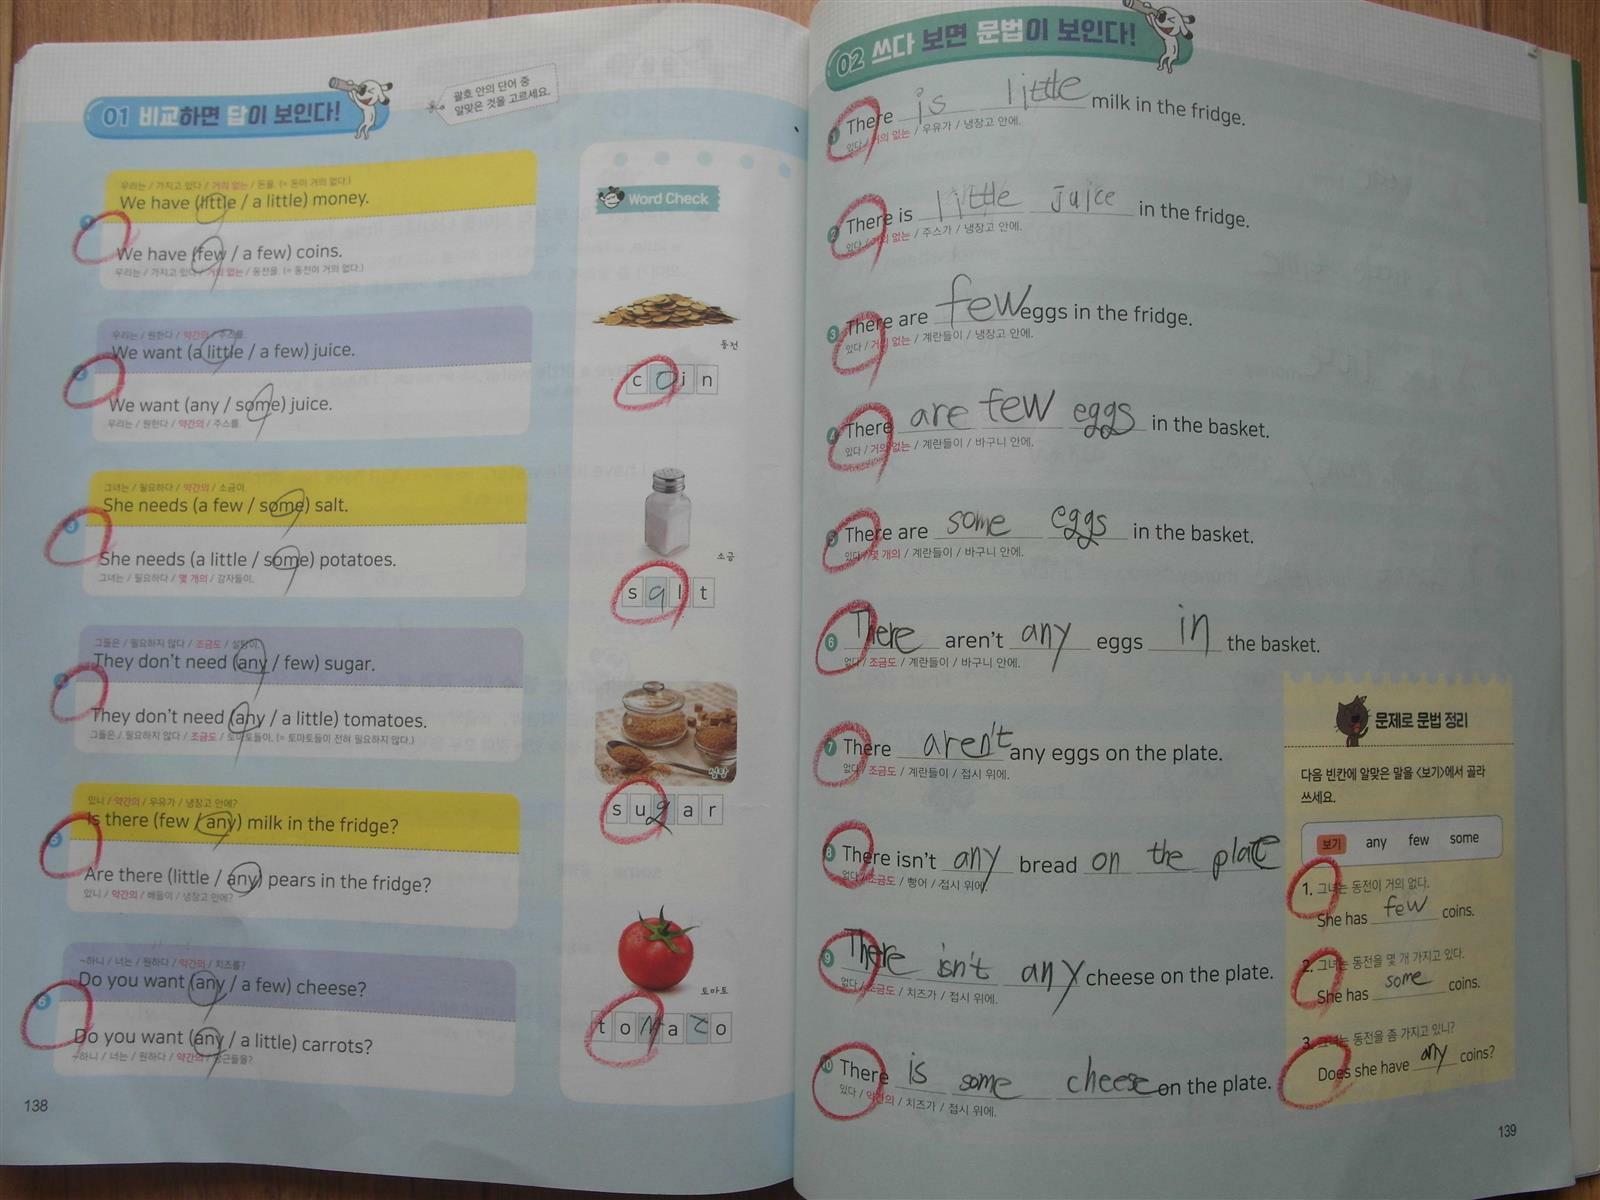 01 비교하면 답이 보인다!
괄호 안의 단어 중
알맞은 것을 고르세요.
우리는 / 가지고 있다 / 거의 없는 / 돈을. (= 돈이 거의 없다.)
We have (little / a little) money.
We have (few / a few) coins.
우리는 / 가지고 있다 / 거의 없는 / 동전을. (= 동전이 거의 없다.)
우리는 / 원한다 / 약간의 / 주스를.
We want (a little / a few) juice.
We want (any / some) juice.
우리는 / 원한다 / 약간의 / 주스를.
그녀는 / 필요하다 / 약간의 / 소금이.
3
She needs (a few / some) salt.
She needs (a little / some) potatoes.
그녀는 / 필요하다 / 몇 개의 / 감자들이.
그들은 / 필요하지 않다 / 조금도 / 설탕이.
They don't need (any / few) sugar.
They don't need (any / a little) tomatoes.
그들은 / 필요하지 않다 / 조금도 / 토마토들이. (= 토마토들이 전혀 필요하지 않다.)
있니 / 약간의 / 우유가 / 냉장고 안에?
Is there (few / any) milk in the fridge?
Are there (little / any) pears in the fridge?
있니 / 약간의 / 배들이 / 냉장고 안에?
~하니 / 너는 / 원하다 / 약간의 / 치즈를?
6
Do you want (any / a few) cheese?
Do you want (any / a little) carrots?
~하니 / 너는 / 원하다 / 약간의 / 당근들을?
138
Word Check
동전
coin
소금
salt
설탕
sugar
토마토
tomato
02 쓰다 보면 문법이 보인다!
1 There is little milk in the fridge.
있다 / 거의 없는 / 우유가 / 냉장고 안에.
2 There is little juice in the fridge.
있다 / 거의 없는 / 주스가 / 냉장고 안에.
3 There are few eggs in the fridge.
있다 / 거의 없는 / 계란들이 / 냉장고 안에.
4 There are few eggs in the basket.
있다 / 거의 없는 / 계란들이 / 바구니 안에.
There are some eggs in the basket.
있다 / 몇 개의 / 계란들이 / 바구니 안에.
6 There aren't any eggs in the basket.
없다 / 조금도 / 계란들이 / 바구니 안에.
7 There aren't any eggs on the plate.
없다 / 조금도 / 계란들이 / 접시 위에.
8 There isn't any bread on the plate
없다 / 조금도 / 빵이 / 접시 위에.
9 There isn't any cheese on the plate.
없다 / 조금도 / 치즈가 / 접시 위에.
10 There is some cheese on the plate.
있다 / 약간의 / 치즈가 / 접시 위에.
문제로 문법 정리
다음 빈칸에 알맞은 말을 <보기>에서 골라
쓰세요.
보기 any few some
1. 그녀는 동전이 거의 없다.
She has few coins.
2. 그녀는 동전을 몇 개 가지고 있다.
She has some coins.
3. 그녀는 동전을 좀 가지고 있니?
Does she have any coins?
139